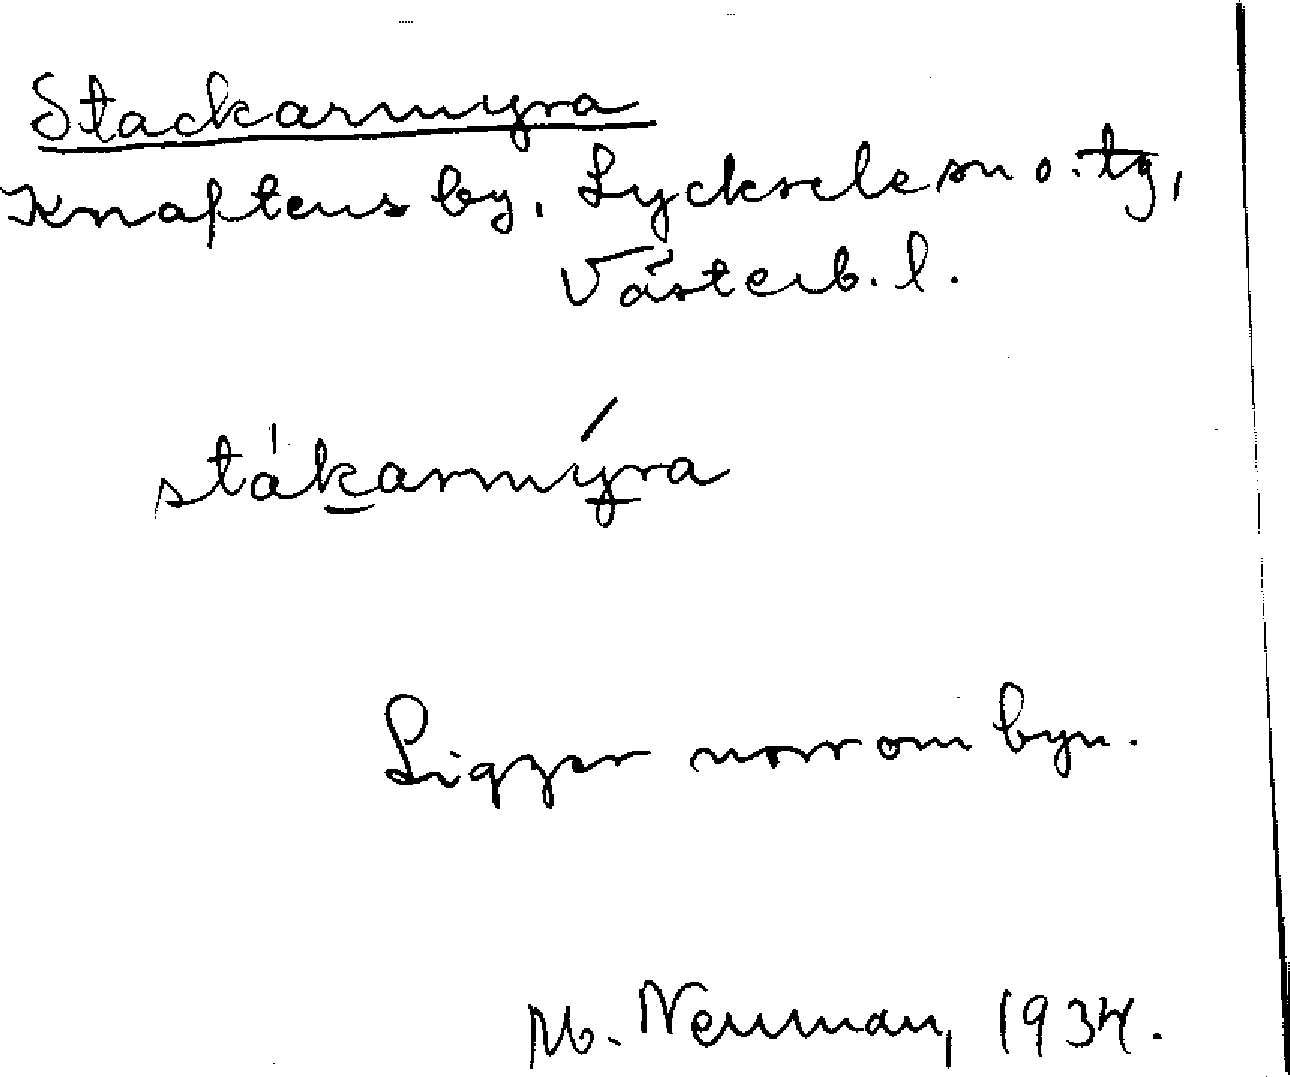 Stackarmyra
Knaftens by, Lycksele sn o. tg,
Västerb. l.
stákarmýra
Ligger norr om byn.
M. Neuman, 1934.